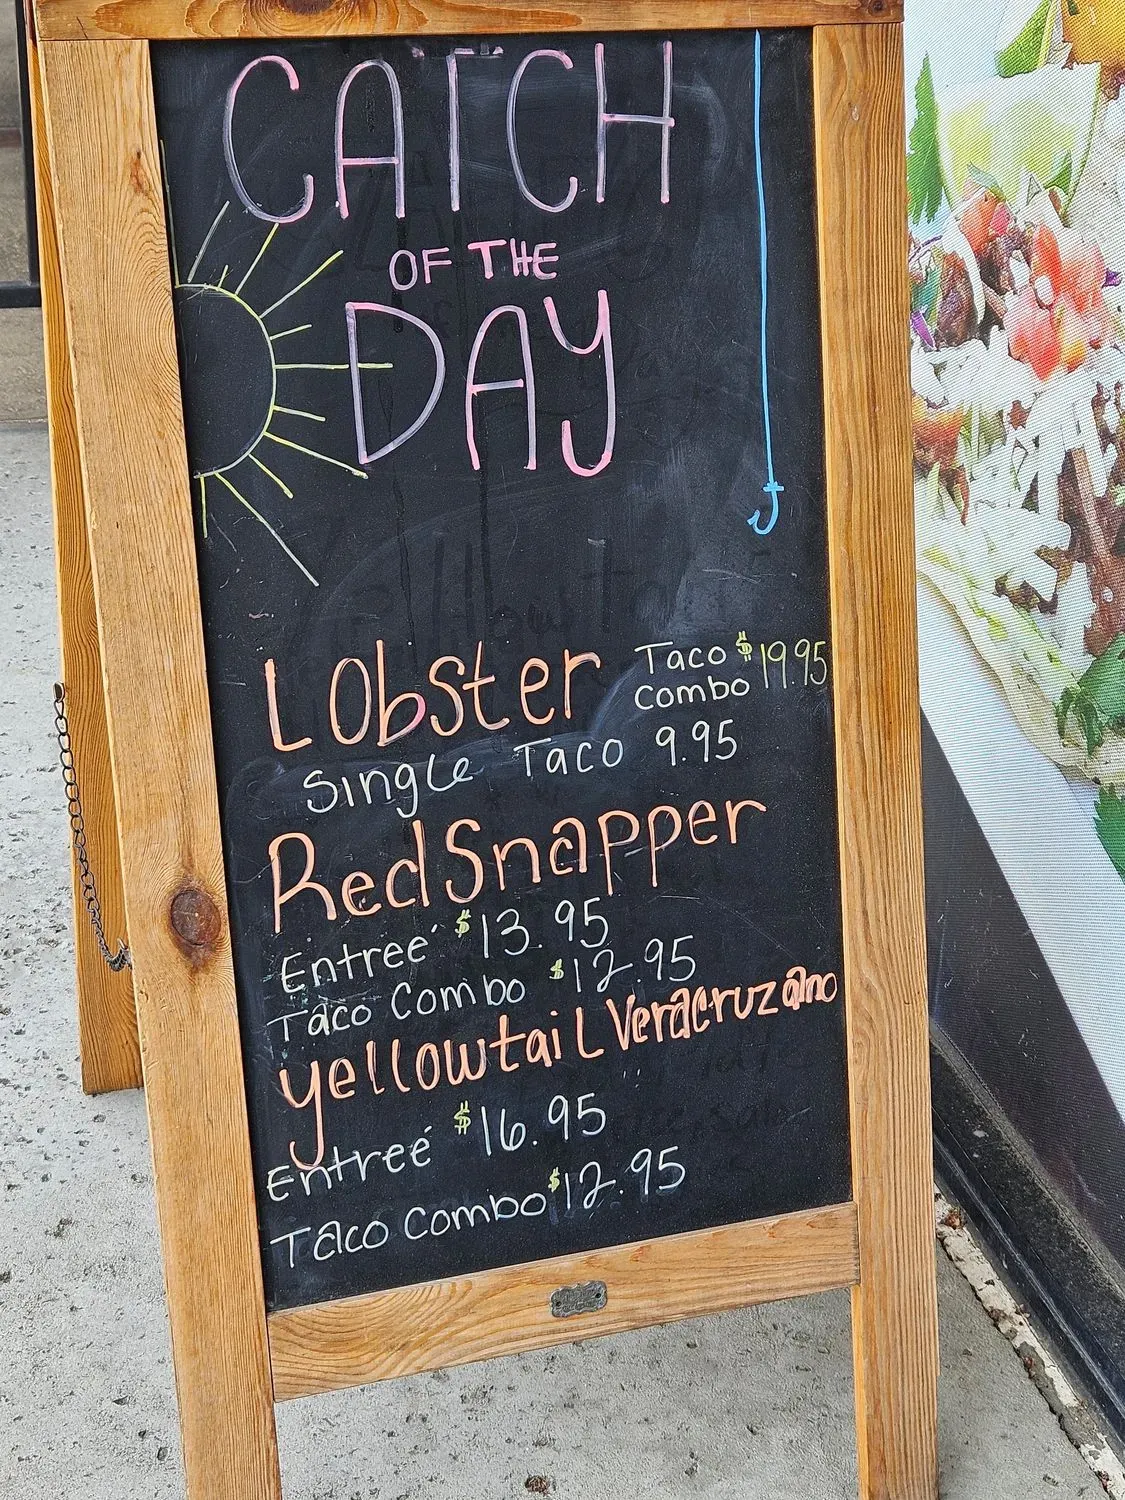 CATCH
OF THE
DAY
LObster Taco $19.95
Combo
Single Taco 9.95
Red Snapper
Entreé $13.95
Taco Combo $12.95
yellowtail Veracruzano
Entreé $16.95
Taco Combo $12.95